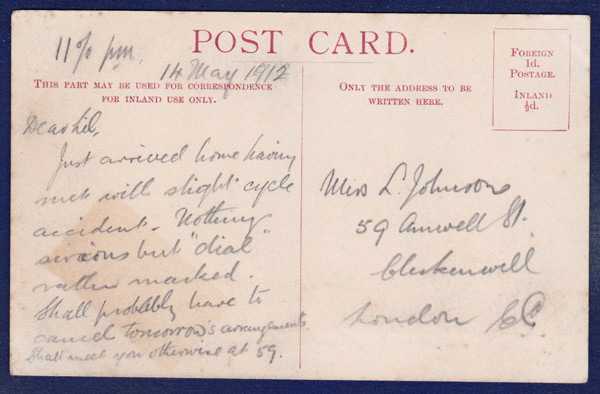 11 pm.
POST CARD.
14 May 1912
THIS PART MAY BE USED FOR CORRESPONDENCE
FOR INLAND USE ONLY.
Dear Lil,
Just arrived home having
met with slight cycle
accident. Nothing
serious but "dial"
rather marked.
Shall probably have to
cancel tomorrow's arrangements.
Shall meet you otherwise at 59.
ONLY THE ADDRESS TO BE
WRITTEN HERE.
FOREIGN
1d.
POSTAGE.
INLAND
½d.
Miss L. Johnson
59 Amwell St.
Clerkenwell
London E.C.